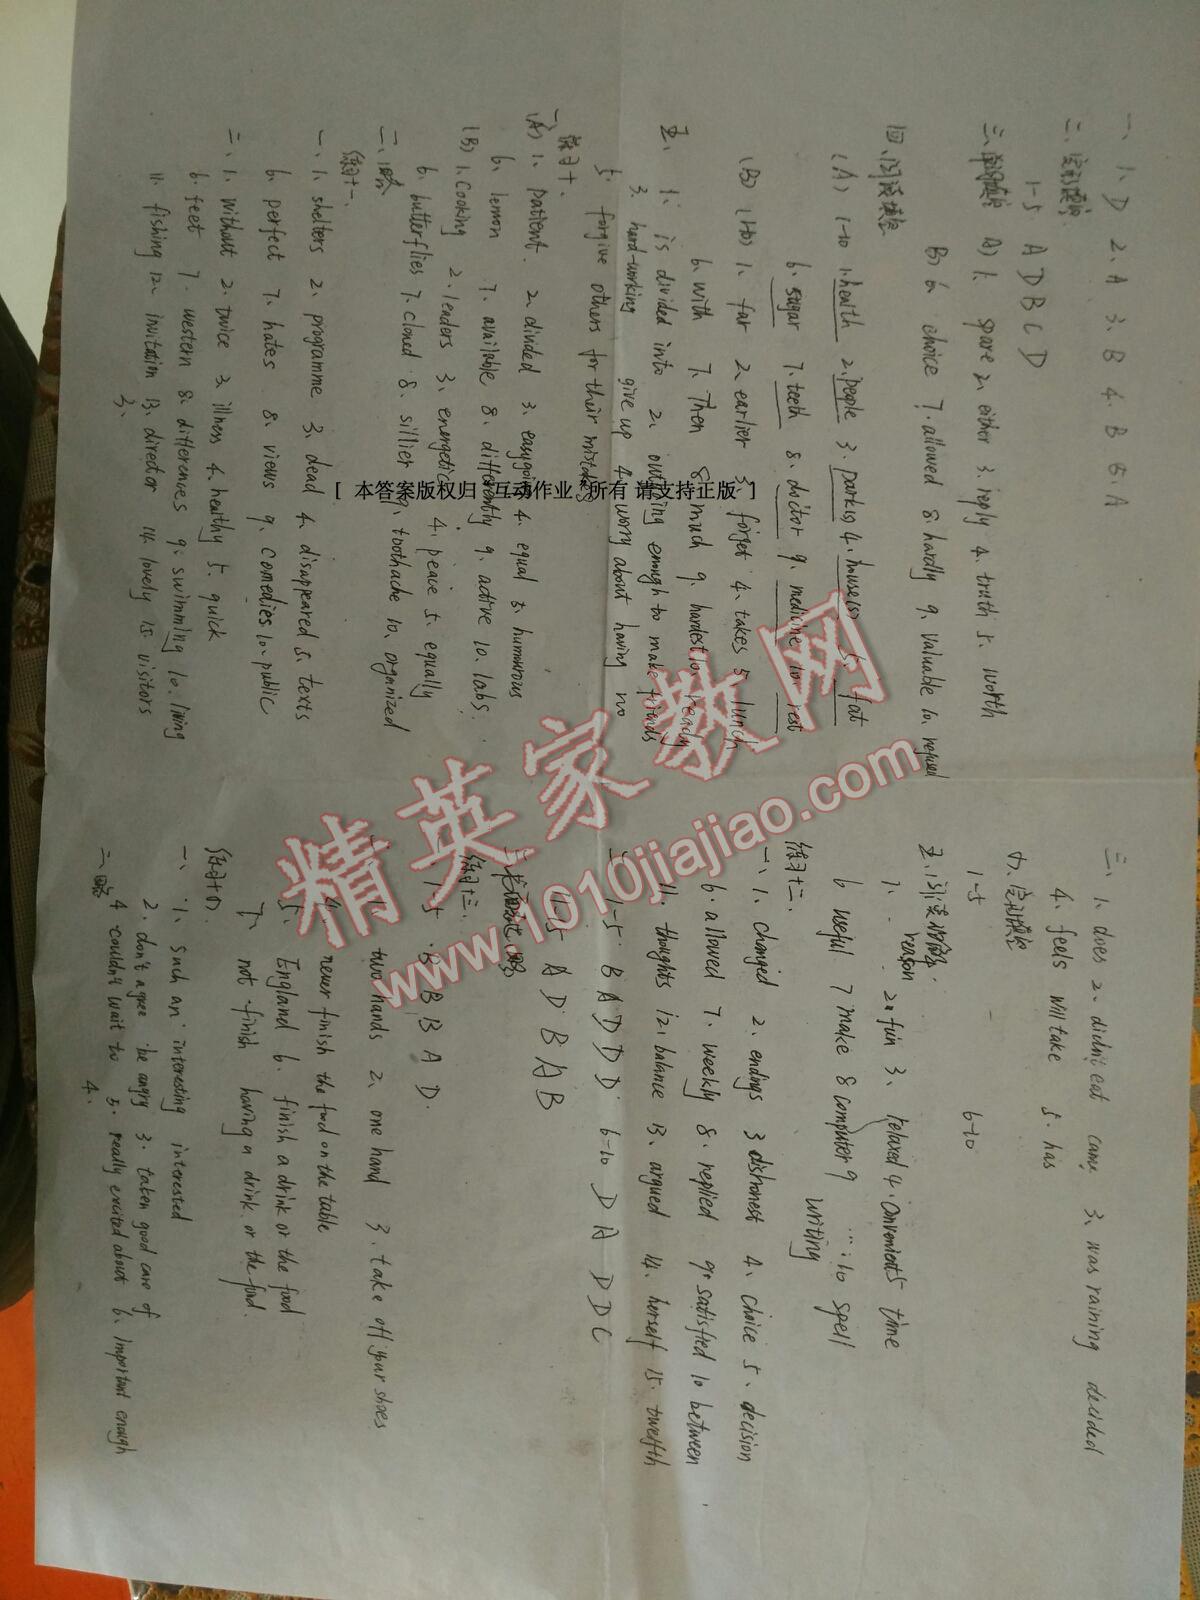 一、1、D 2、A 3、B 4、B 5、A
二、完形填空
1-5 A D B C D
三、单词填空 A) 1、spare 2、either 3、reply 4、truth 5、worth
B) 6、choice 7、allowed 8、hardly 9、valuable 10、refused
四、阅读填空
(A) 1-10 1、health 2、people 3、parks 4、house(s) 5、fat
6、sugar 7、teeth 8、doctor 9、medicine 10、rest
(B) (1-10) 1、far 2、earlier 3、forget 4、takes 5、lunch
6、with 7、Then 8、much 9、hardest 10、ready
五、1、is divided into 2、outgoing enough to make friends
3、hard-working give up 4、worry about having no
5、forgive others for their mistakes
练习十、
一、(A) 1、patient 2、divided 3、easygoing 4、equal 5、humurous
6、lemon 7、available 8、differently 9、active 10、labs
(B) 1、cooking 2、leaders 3、energetic 4、peace 5、equally
6、butterflies 7、cloned 8、sillier 9、toothache 10、organized
二、略
练习十一、
一、1、shelters 2、programme 3、dead 4、disapeared 5、texts
6、perfect 7、hates 8、views 9、comedies 10、public
二、1、without 2、twice 3、illness 4、healthy 5、quick
6、feet 7、western 8、differences 9、swimming 10、living
11、fishing 12、invitation 13、director 14、lovely 15、visitors
3、
三、1、does 2、didn't eat came 3、was raining decided
4、feels will take 5、has
六、完形填空
1-5 - 6-10
五、阅读
1、reason 2、fun 3、relaxed 4、convenient 5 time
6 useful 7 make 8 computer 9 writing 10 spell
练习十二、
一、1、changed 2、endings 3 dishonest 4、choice 5、decision
6、allowed 7、weekly 8、replied 9、satisfied 10 between
11、thoughts 12、balance 13、argued 14、herself 15、twelfth
二、1-5 B A D D D 6-10 D A D D C
11-15 A D B A B
三、书面表达、略
练习十三、
1-5 B B B A D
1、two hands 2、one hand 3、take off your shoes
4、never finish the food on the table
5、England 6、finish a drink or the food
7、not finish having a drink or the food.
练习十四、
一、1、such an interesting interested
2、don't agree be angry 3、taken good care of
4 couldn't wait to 5、really excited about 6、important enough
二、略
4、
[ 本答案版权归 互动作业 所有 请支持正版 ]
精英家教网
www.1010jiajiao.com